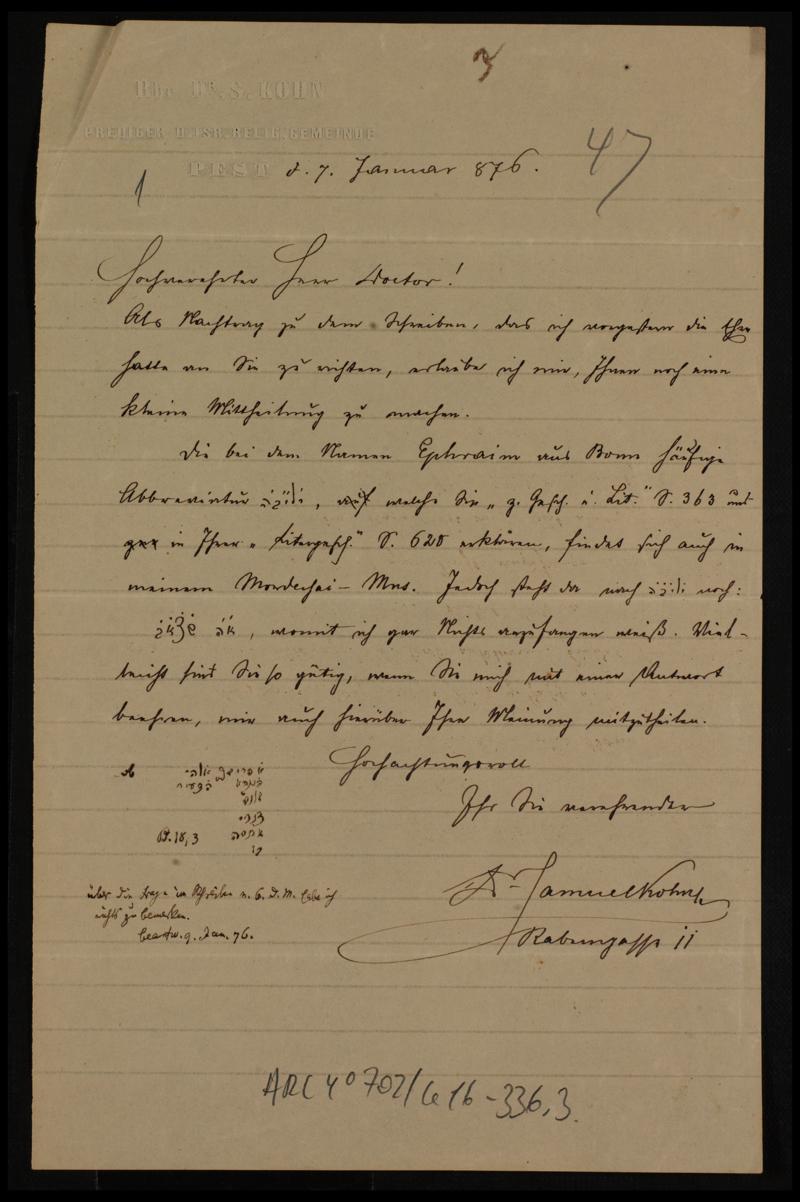 3
Rbr. Dr. S. KOHN
PREDIGER D. ISR. RELIG. GEMEINDE
PEST d. 7. Januar 876.
47
1
Hochverehrter Herr Doctor!
Als Nachtrag zu dem Schreiben, das ich vorgestern die Ehre
hatte an Sie zu richten, erlaube ich mir, Ihnen noch eine
kleine Mittheilung zu machen.
Die bei dem Namen Ephraim aus Bonn häufige
Abbreviatur, auf welche Sie „z. Gesch. u. Lit." S. 363 und
in Ihrer „Literagesch." S. 628 erklären, findet sich auch in
meinem Mordechai-Mns. Jedoch steht da nach noch:
, womit ich gar Nichts anzufangen weiß. Viel-
leicht sind Sie so gütig, wenn Sie mich mit einer Antwort
beehren, mir auch hierüber Ihre Meinung mitzutheilen.
Hochachtungsvoll
Ihr Sie verehrender
Dr. Samuel Kohn
Rabengasse 11
über die Frage im Schreiben v. 6. d. M. habe ich
nichts zu bemerken.
beantw. 9. Jan. 76.
ARC 4° 792/G 16-336,3.